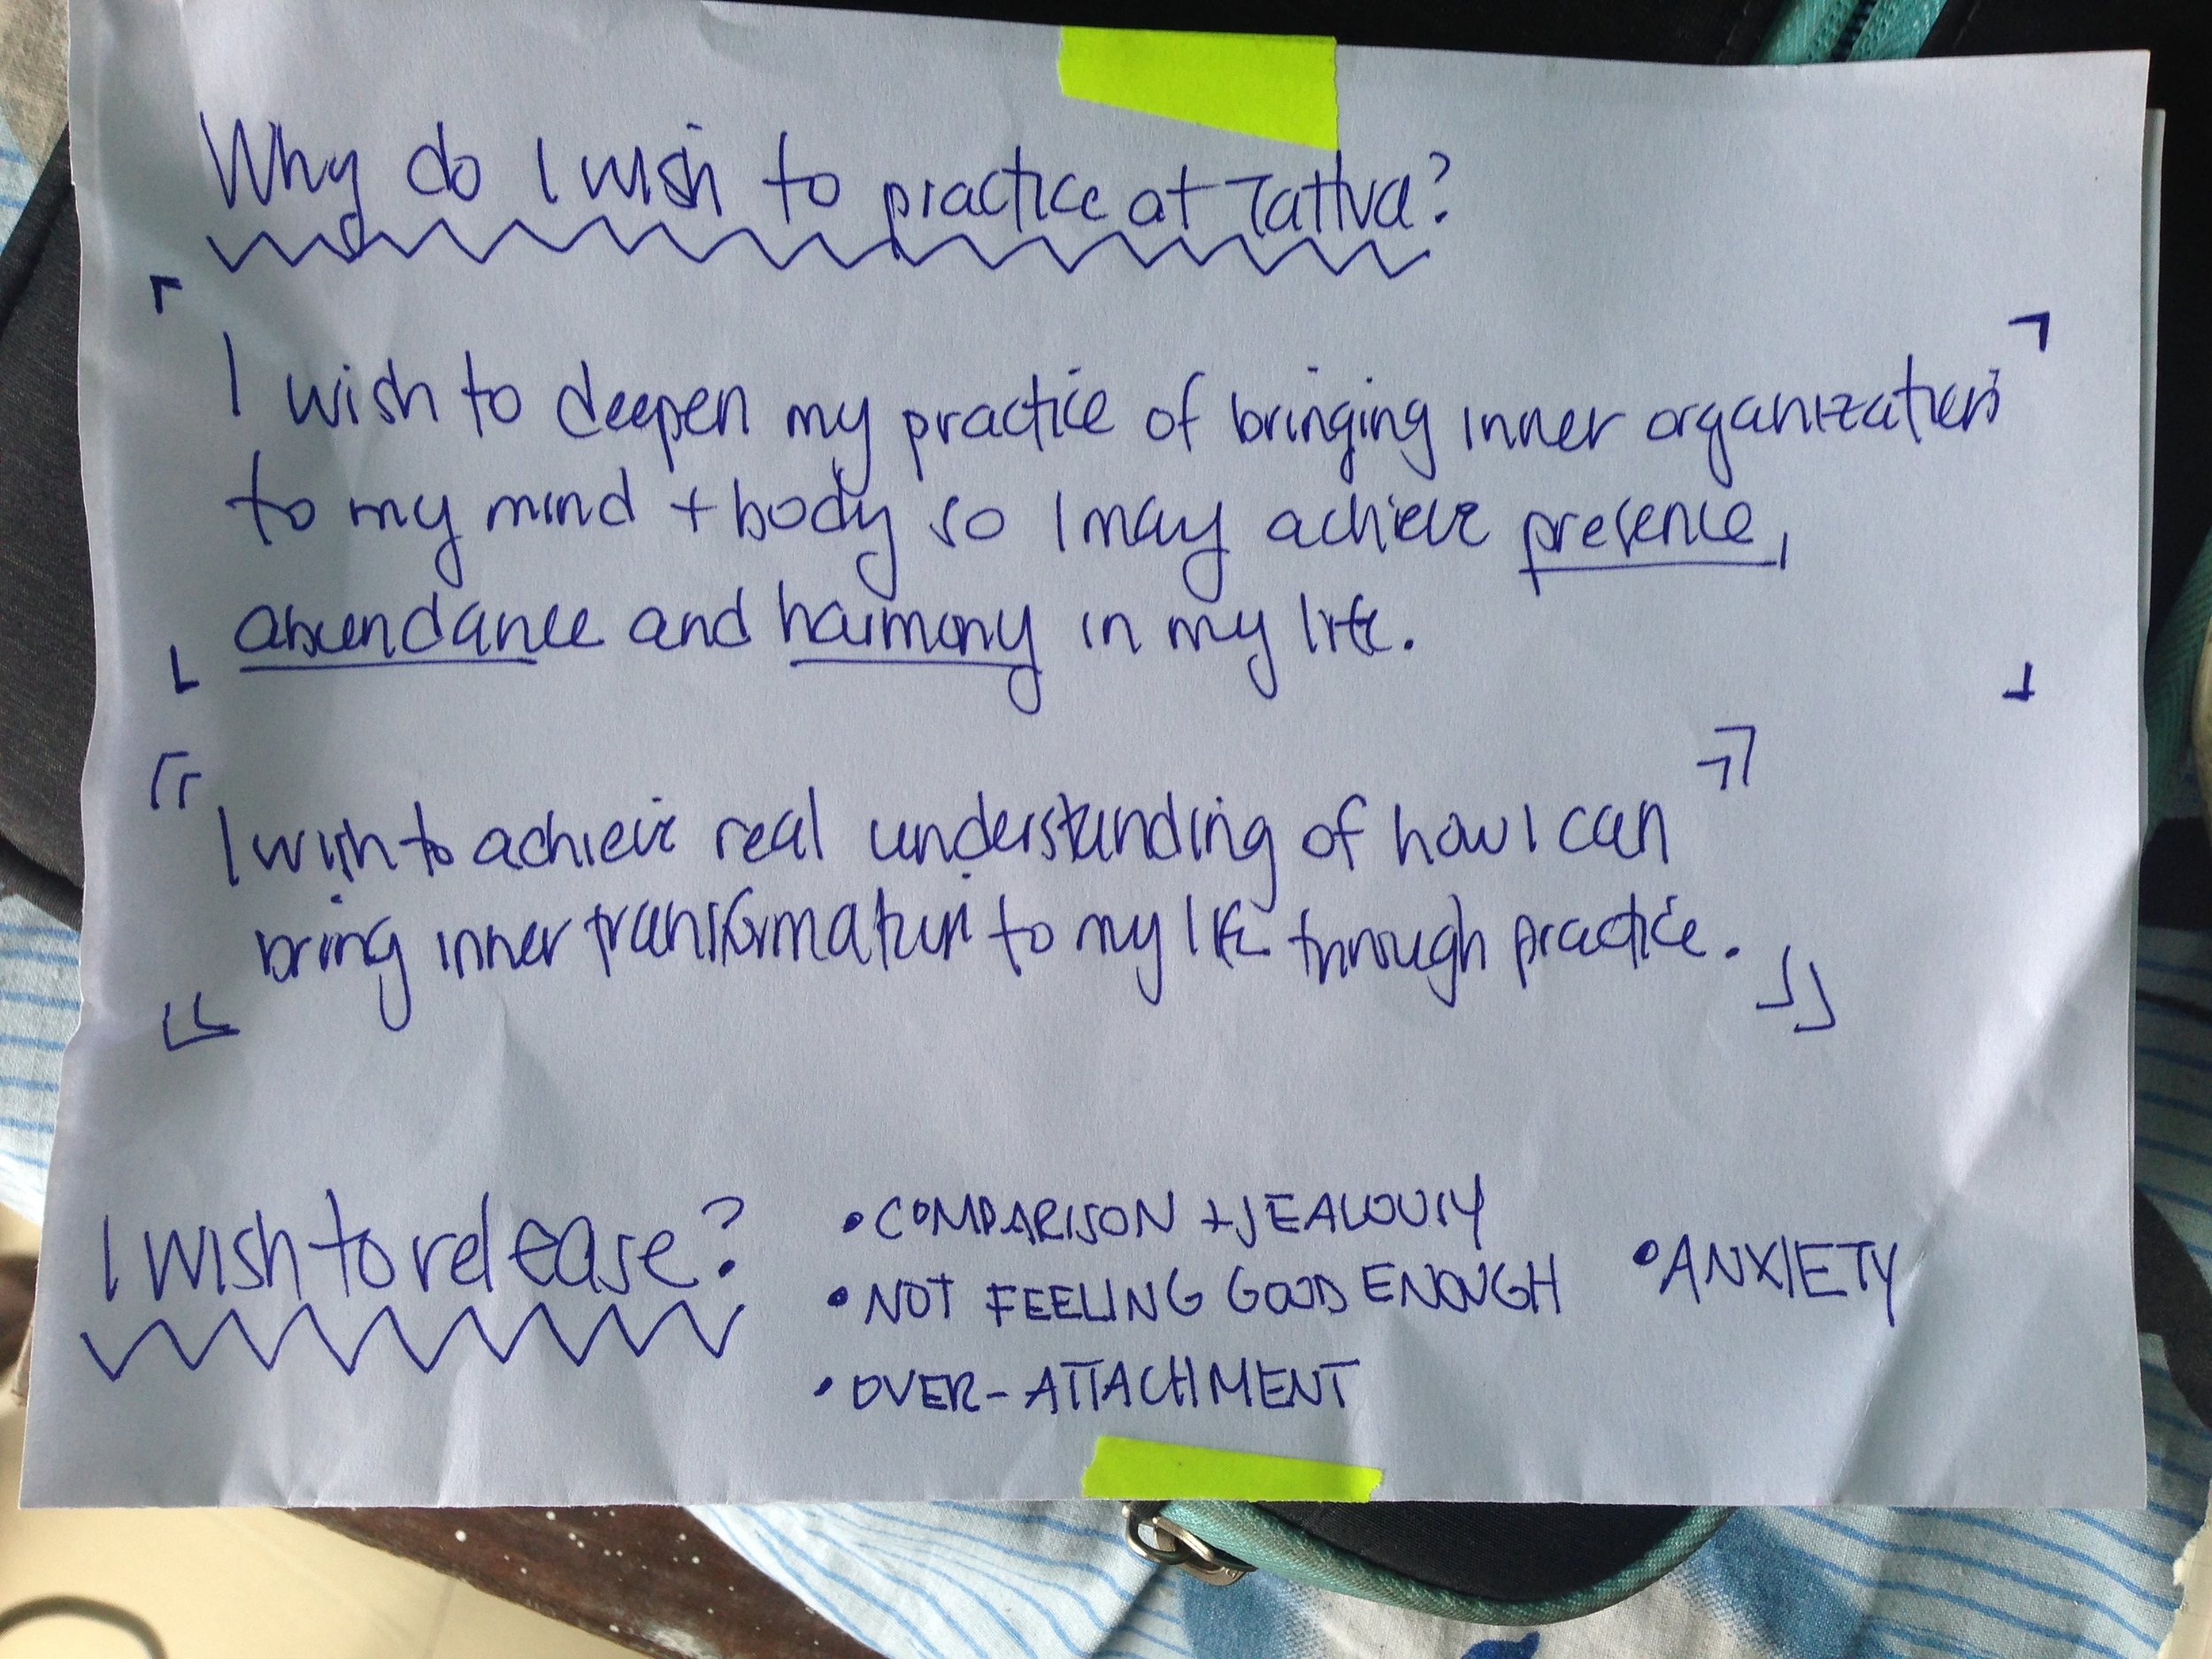 Why do I wish to practice at Tattva?
I wish to deepen my practice of bringing inner organization
to my mind + body so I may achieve presence,
abundance and harmony in my life.
I wish to achieve real understanding of how I can
bring inner transformation to my life through practice.
I wish to release?
• COMPARISON + JEALOUSY
• NOT FEELING GOOD ENOUGH
• ANXIETY
• OVER-ATTACHMENT